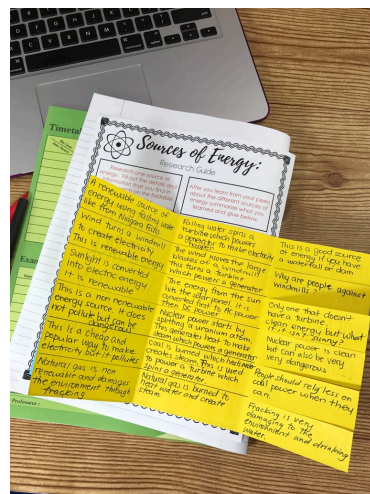 Timeta
Exa
Professeur :
Sources of Energy:
Research Guide
Research one source of
energy. Fill out the details and
information that you find in
on the foldable
After you learn from your peers
about the different sources of
energy summarize what you
learned and glue below.
A renewable source of
energy using falling water
like from Niagra Falls.
Wind turns a windmill
to create electricity
This is renewable energy
Sunlight is converted
into electric energy
it is renewable
This is a non renewable
energy source. It does
not pollute but can be
dangerous
This is a cheap and
popular way to make
electricity but it pollutes
Natural gas is non
renewable and damages
the environment through
fracking
Falling water spins a
turbine which powers
a generator to make electricity
happen
The wind moves the large
blades of a wind mill
This turns a turbine
which powers a generator
The energy from the sun
hits the solar panel. It is
converted first to AC power
then DC Power
Nuclear power starts by
splitting a uranium atom.
This generates heat to make
steam which powers a generator
coal is burned which
creates steam. This is used
to power a turbine which
spins a generator.
Natural gas is burned to
heat water and create
steam.
This is a good source
of energy if you have
a waterfall or dam
Why are people against
windmills?
Only one that doesn't
have a turbine.
Clean energy but what
if it isn't sunny?
Nuclear power is clean
but can also be very
very dangerous
People should rely less on
coal power when they
can.
Fracking is very
damaging to the
environment and drinking
water.